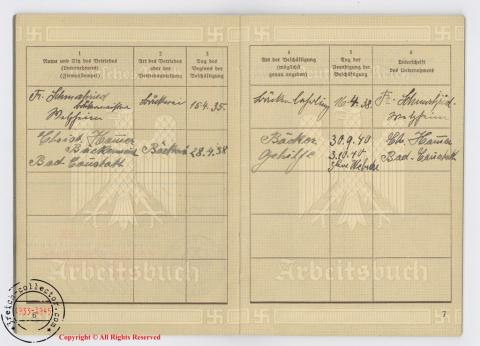 1
Name und Sitz des Betriebes
(Unternehmers)
(Firmenstempel)
2
Art des Betriebes
oder der
Betriebsabteilung
3
Tag des
Beginns der
Beschäftigung
Fr.
Welzheim
15.4.35.
Christ. Hauser
Bad Canstatt
Bäckerei
28.4.38
Arbeitsbuch
6
4
Art der Beschäftigung
(möglichst
genau angeben)
5
Tag der
Beendigung der
Beschäftigung
6
Unterschrift
des Unternehmers
Bäckerlehrling
16.4.38.
Fr.
Welzheim
Bäcker
Gehilfe
30.9.40
3.10.40
Chr. Hauser
Bad-Canstatt
Arbeitsbuch
7
3reich-collector.com
1933-1945
Copyright © All Rights Reserved